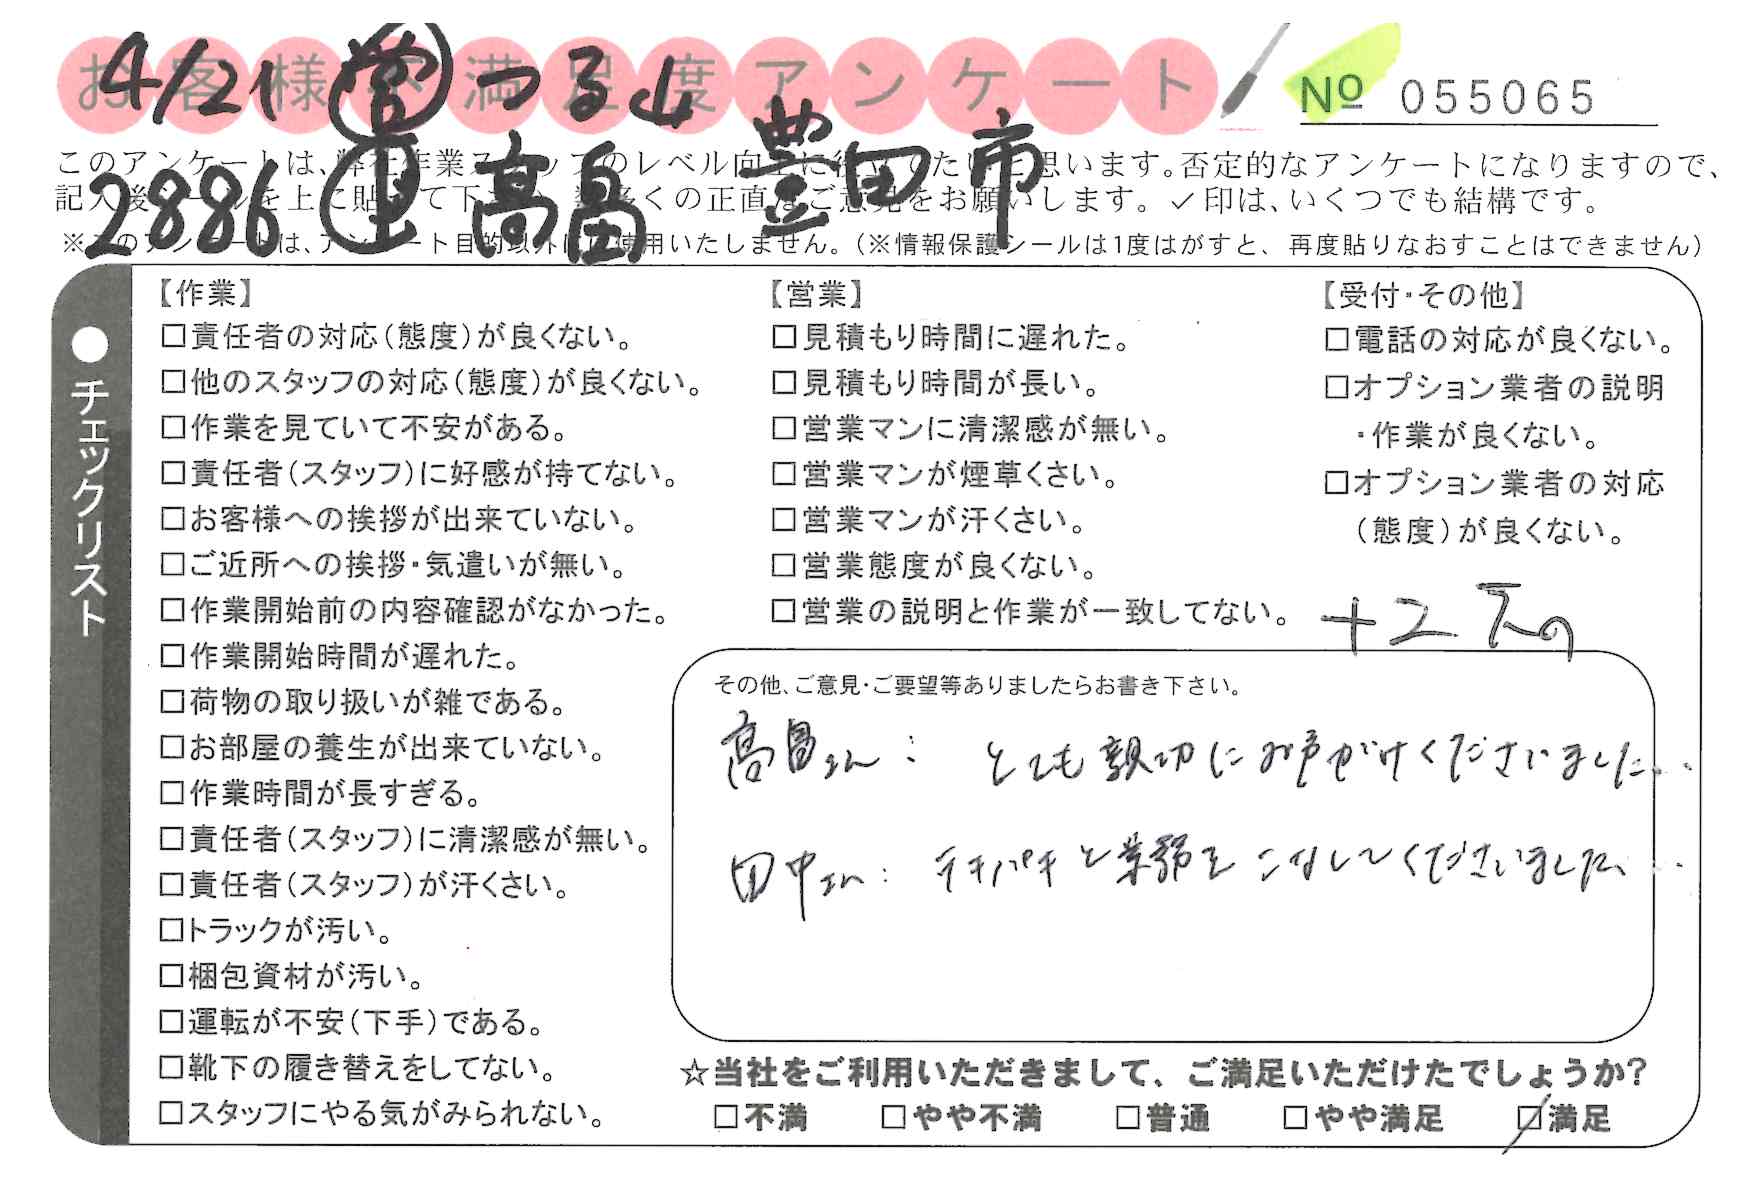 お客様不満足度アンケート
№ 055065
4/21 営 つる山
2886 高畠 豊田市
このアンケートは、弊社作業スタッフのレベル向上に役立てたいと思います。否定的なアンケートになりますので、
記入後シールを上に貼って下 数多くの正直なご意見をお願いします。✓印は、いくつでも結構です。
※このアンケートは、アンケート目的以外には使用いたしません。(※情報保護シールは1度はがすと、再度貼りなおすことはできません)
●チェックリスト
【作業】
□責任者の対応(態度)が良くない。
□他のスタッフの対応(態度)が良くない。
□作業を見ていて不安がある。
□責任者(スタッフ)に好感が持てない。
□お客様への挨拶が出来ていない。
□ご近所への挨拶・気遣いが無い。
□作業開始前の内容確認がなかった。
□作業開始時間が遅れた。
□荷物の取り扱いが雑である。
□お部屋の養生が出来ていない。
□作業時間が長すぎる。
□責任者(スタッフ)に清潔感が無い。
□責任者(スタッフ)が汗くさい。
□トラックが汚い。
□梱包資材が汚い。
□運転が不安(下手)である。
□靴下の履き替えをしてない。
□スタッフにやる気がみられない。
【営業】
□見積もり時間に遅れた。
□見積もり時間が長い。
□営業マンに清潔感が無い。
□営業マンが煙草くさい。
□営業マンが汗くさい。
□営業態度が良くない。
□営業の説明と作業が一致してない。
【受付・その他】
□電話の対応が良くない。
□オプション業者の説明
・作業が良くない。
□オプション業者の対応
(態度)が良くない。
+2
その他、ご意見・ご要望等ありましたらお書き下さい。
高畠さん: とても親切にお声がけくださいました…
田中さん: テキパキと業務をこなしてくださいました…
☆当社をご利用いただきまして、ご満足いただけたでしょうか?
□不満 □やや不満 □普通 □やや満足 ☑満足